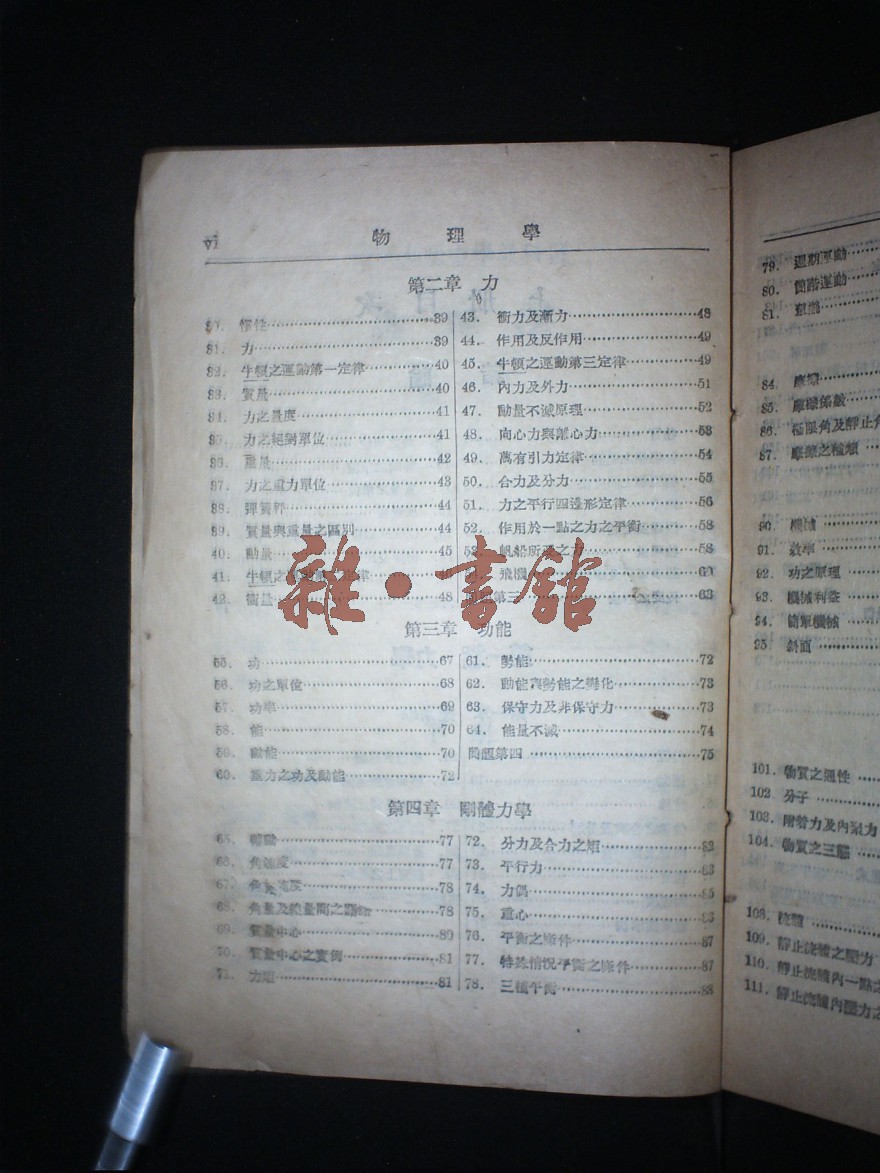 vi 物理學
第二章 力
30. 慣性 39
31. 力 39
32. 牛頓之運動第一定律 40
33. 質量 40
34. 力之量度 41
35. 力之絕對單位 41
36. 重量 42
37. 力之重力單位 43
38. 彈簧秤 44
39. 質量與重量之區別 44
40. 動量 45
41. 牛頓之 定律
42. 衝量 48
43. 衝力及漸力 48
44. 作用及反作用 49
45. 牛頓之運動第三定律 49
46. 內力及外力 51
47. 動量不滅原理 52
48. 向心力與離心力 53
49. 萬有引力定律 54
50. 合力及分力 55
51. 力之平行四邊形定律 56
52. 作用於一點之力之平衡 58
53. 帆船所受之力 58
飛機 60
第三 63
雜·書館
第三章 功能
55. 功 67
56. 功之單位 68
57. 功率 69
58. 能 70
59. 動能 70
60. 重力之功及動能 72
61. 勢能 72
62. 動能與勢能之變化 73
63. 保守力及非保守力 73
64. 能量不滅 74
問題第四 75
第四章 剛體力學
65. 轉動 77
66. 角速度 77
67. 角加速度 78
68. 角量及線量間之關係 78
69. 質量中心 80
70. 質量中心之實例 81
71. 力矩 81
72. 分力及合力之矩 82
73. 平行力 83
74. 力偶 85
75. 重心 86
76. 平衡之條件 87
77. 特殊情況平衡之條件 87
78. 三種平衡 88
79. 週期運動
80. 簡諧運動
81. 單擺
84. 摩擦
85. 摩擦係數
86. 極限角及靜止角
87. 摩擦之種類
90. 機械
91. 效率
92. 功之原理
93. 機械利益
94. 簡單機械
95. 斜面
101. 物質之通性
102 分子
103. 附着力及內聚力
104. 物質之三態
108. 流體
109. 靜止流體之壓力
110. 靜止流體內一點之
111. 靜止流體內壓力之